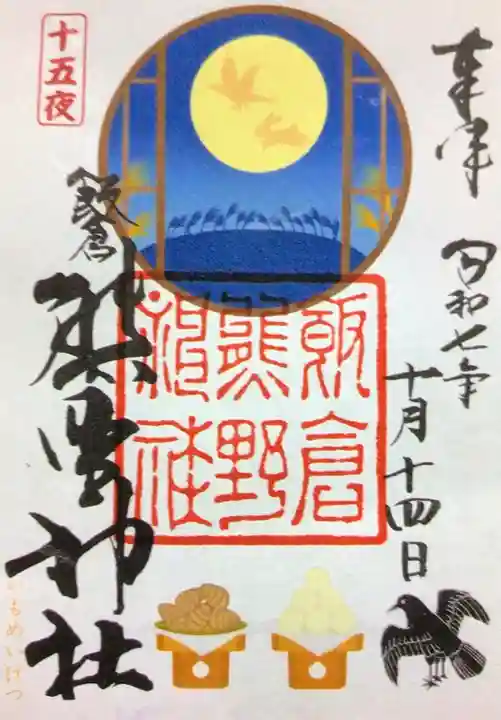 奉拝
令和七年
十月十四日
十五夜
飯倉
熊野神社
飯倉
熊野
神社
いもめいげつ